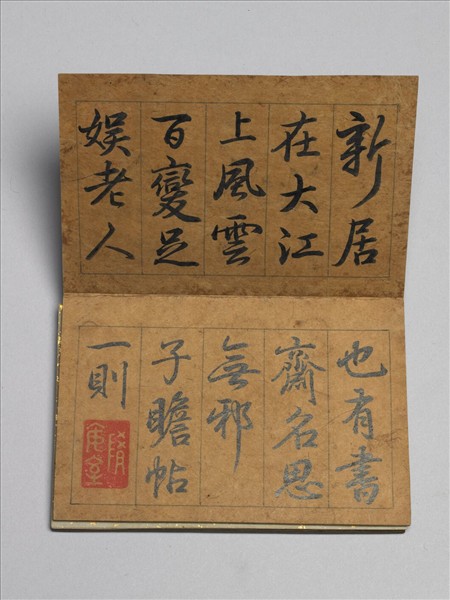 新居
在大江
上風雲
百變足
娛老人
也有書
齋名思
無邪
子瞻帖
一則